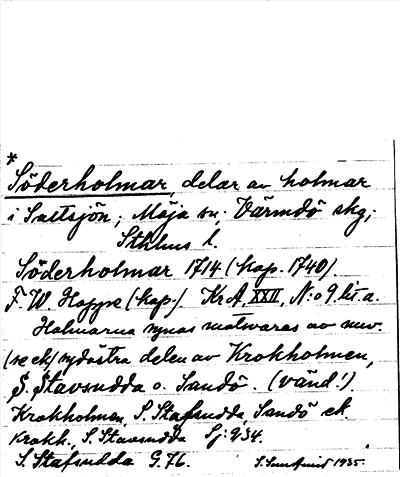 *
Söderholmar, delar av holmar
i Saltsjön; Möja sn; Värmdö skg;
Sthlms l.
Söderholmar 1714 (kop. 1740).
F. W. Hoppe (kop.) KrA, XXII, N:o 9 lit. a.
Holmarna synas motsvaras av nuv.
(se ek) sydöstra delen av Krokholmen,
S. Stavsudda o. Sandö. (vänd!).
Krokholmen, S. Stafsudda, Sandö ek.
Krokh., S. Stavsudda Sj: 934.
S. Stafsudda G. 76. 1935.